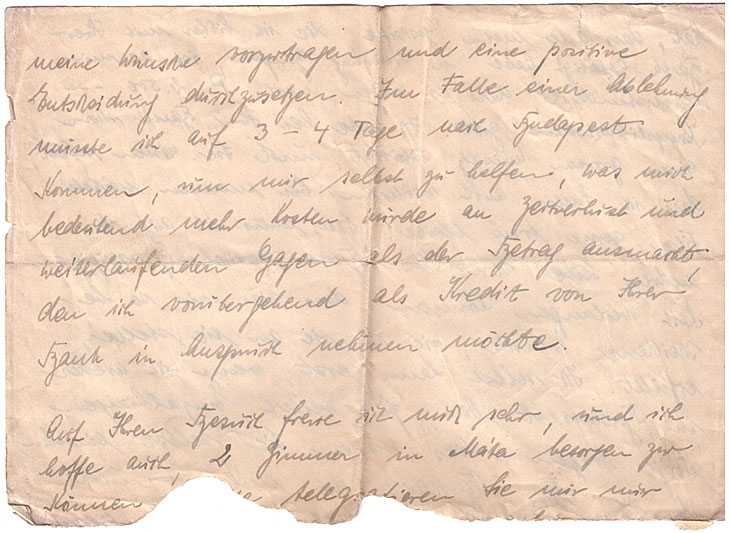 meine Wünsche vorzutragen und eine positive
Entscheidung durchzusetzen. Im Falle einer Ablehnung
müsste ich auf 3–4 Tage nach Budapest
kommen, um mir selbst zu helfen, was mich
bedeutend mehr kosten würde an Zeitverlust und
weiterlaufenden Gagen als der Betrag ausmacht,
den ich vorübergehend als Kredit von Ihrer
Bank in Anspruch nehmen möchte.
Auf Ihren Besuch freue ich mich sehr, und ich
hoffe auch, 2 Zimmer in Máta besorgen zu
können telegrafieren Sie mir nur